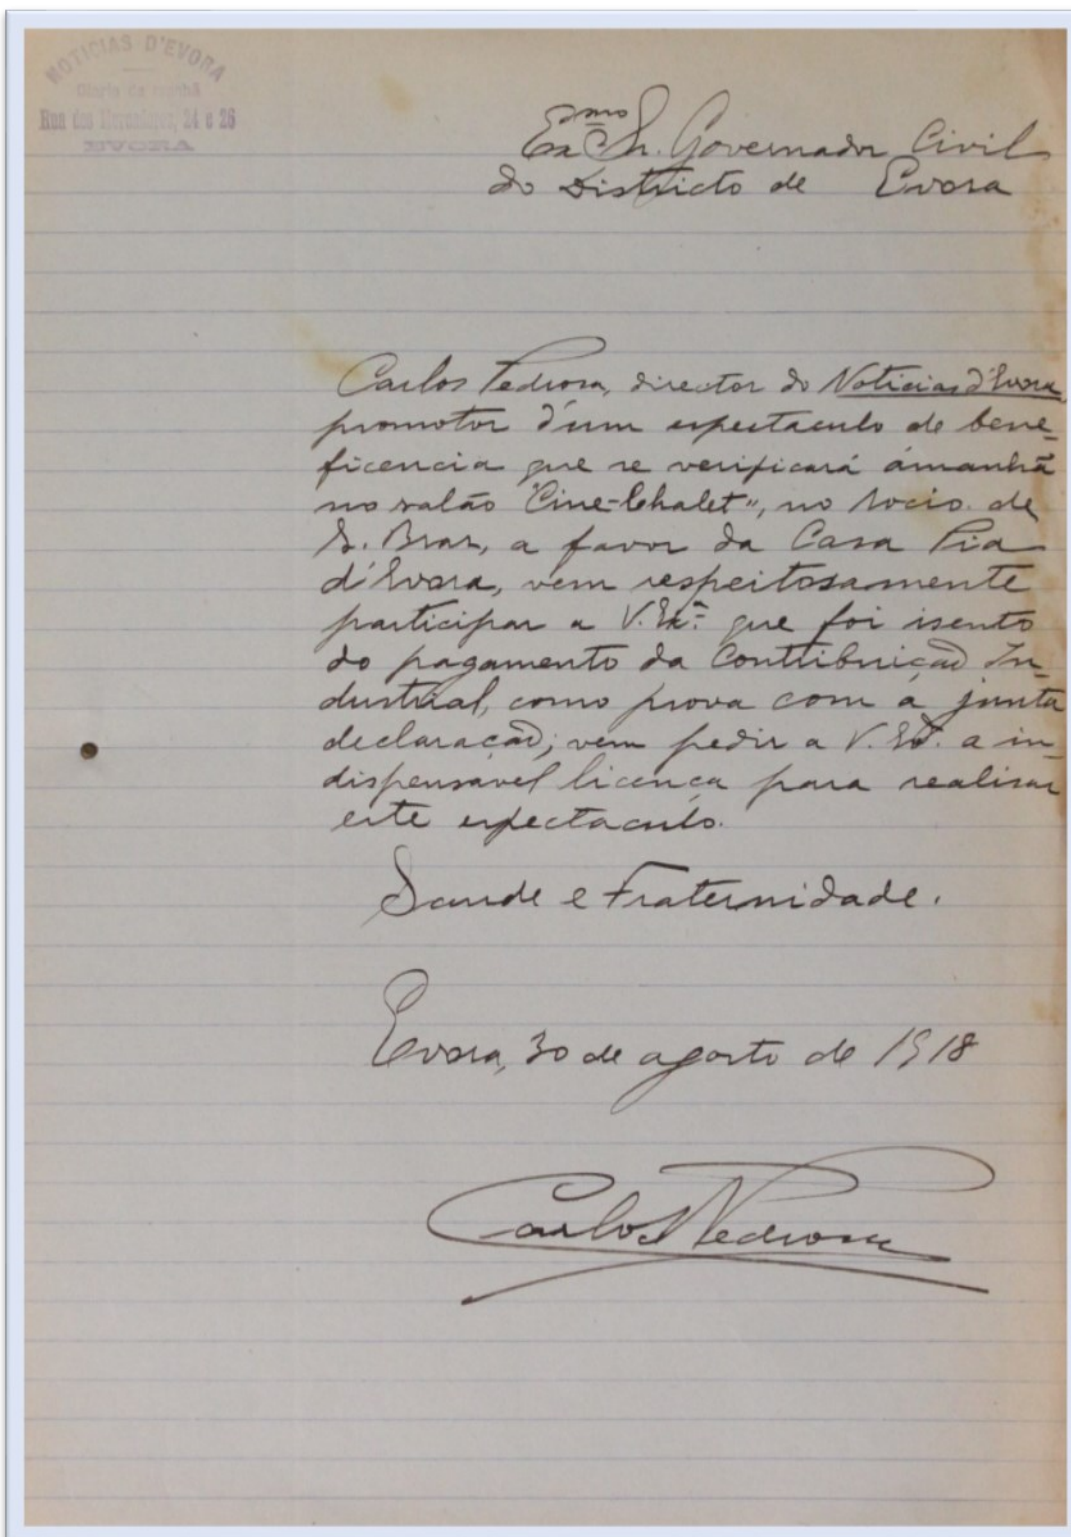 NOTICIAS D'EVORA
Diario da manhã
Rua dos Mercadores, 24 e 26
EVORA
Exmo Sr. Governador Civil
do Districto de Evora
Carlos Pedrosa, director do Noticias d'Evora,
promotor d'um espectaculo de bene-
ficencia que se verificará ámanhã
no salão "Cine-Chalet", no Rocio de
S. Braz, a favor da Casa Pia
d'Evora, vem respeitosamente
participar a V. Exª. que foi isento
do pagamento da Contribuição In-
dustrial, como prova com a junta
declaração; vem pedir a V. Exª. a in-
dispensavel licença para realisar
este espectaculo.
Saude e Fraternidade.
Evora, 30 de agosto de 1918
Carlos Pedrosa